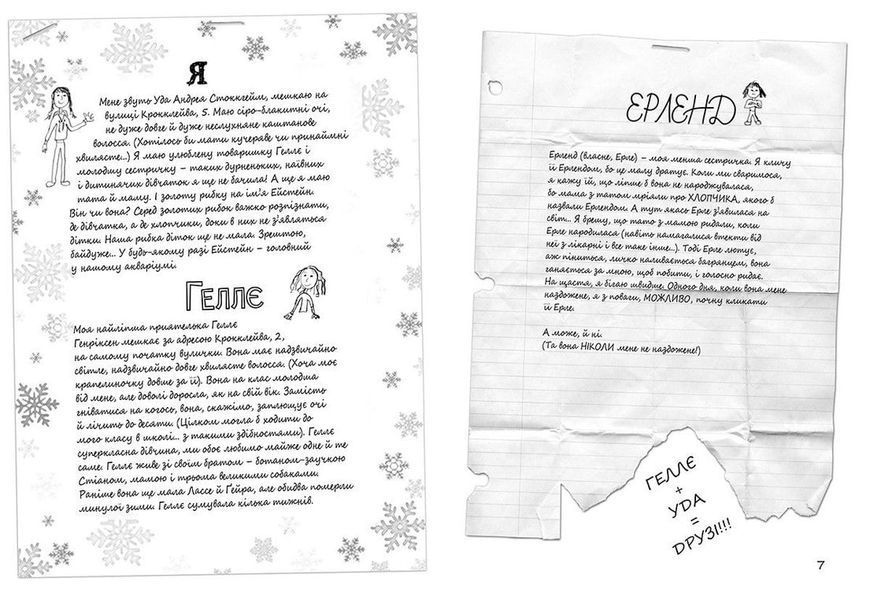 Я
Мене звуть Уда Андреа Стоккгейм, мешкаю на
вулиці Крокклейва, 5. Маю сіро-блакитні очі,
не дуже довге й дуже неслухняне каштанове
волосся. (Хотілось би мати кучеряве чи принаймні
хвилясте...) Я маю улюблену товаришку Геллє і
молодшу сестричку – таких дурненьких, наївних
і дитинячих дівчаток я ще не бачила! А ще я маю
тата й маму. І золоту рибку на ім'я Ейстейн.
Він чи вона? Серед золотих рибок важко розпізнати,
де дівчатка, а де хлопчики, доки в них не з'являться
дітки. Наша рибка діток ще не мала. Зрештою,
байдуже... У будь-якому разі Ейстейн – головний
у нашому акваріумі.
Геллє
Моя найліпша приятелька Геллє
Генріксен мешкає за адресою Крокклейва, 2,
на самому початку вулички. Вона має надзвичайно
світле, надзвичайно довге хвилясте волосся. (Хоча моє
крапелиночку довше за її). Вона на клас молодша
від мене, але доволі доросла, як на свій вік. Замість
гніватися на когось, вона, скажімо, заплющує очі
й лічить до десяти. (Цілком могла б ходити до
мого класу в школі... з такими здібностями). Геллє
суперкласна дівчина, ми обоє любимо майже одне й те
саме. Геллє живе зі своїм братом – ботаном-заучкою
Стіаном, мамою і трьома великими собаками.
Раніше вона ще мала Лассе й Ґейра, але обидва померли
минулої зими. Геллє сумувала кілька тижнів.
ЕРЛЕНД
Ерленд (власне, Ерле) – моя менша сестричка. Я кличу
її Ерлендом, бо це малу дратує. Коли ми сваримося,
я кажу їй, що ліпше б вона не народжувалася,
бо мама з татом мріяли про ХЛОПЧИКА, якого б
назвали Ерлендом. А тут якась Ерле з'явилася на
світ... Я брешу, що тато з мамою ридали, коли
Ерле народилася (навіть намагалися втекти від
неї з лікарні і все таке інше...). Тоді Ерле лютує,
аж піниться, личко наливається багрянцем, вона
ганяється за мною, щоб побити, і голосно ридає.
На щастя, я бігаю швидше. Одного дня, коли вона мене
наздожене, я з поваги, МОЖЛИВО, почну кликати
її Ерле.
А може, й ні.
(Та вона НІКОЛИ мене не наздожене!)
ГЕЛЛЄ
+
УДА
=
ДРУЗІ!!!
7